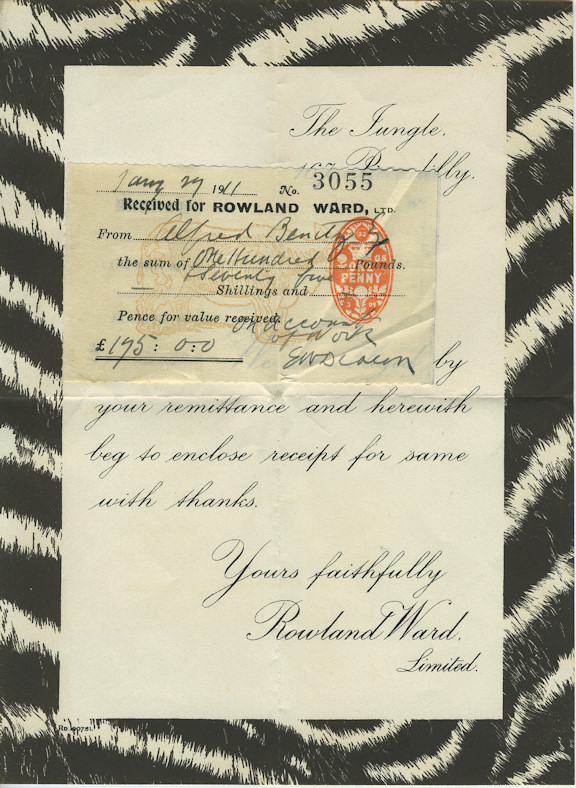 The Jungle.
167 Piccadilly.
Jany 27 1911 No. 3055
Received for ROWLAND WARD, LTD.
From Alfred
the sum of One Hundred
& Seventy five Pounds.
Shillings and
PENNY
Pence for value received. On account
of Work
£175: 0:0
by
your remittance and herewith
beg to enclose receipt for same
with thanks.
Yours faithfully
Rowland Ward.
Limited.